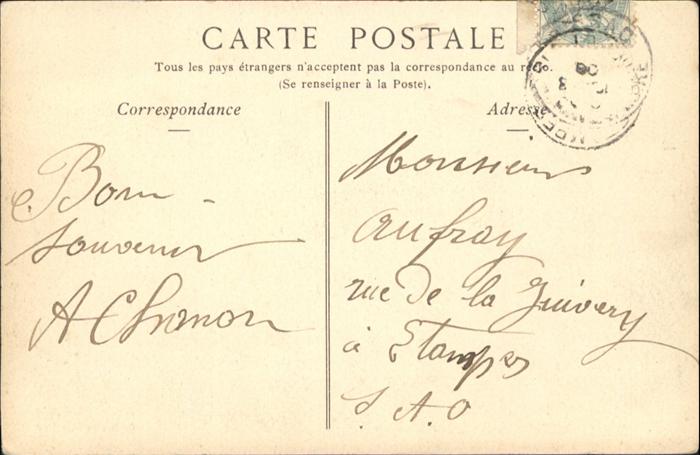 CARTE POSTALE
Tous les pays étrangers n'acceptent pas la correspondance au
(Se renseigner à la Poste).
Correspondance
Bon
Souvenir
Adresse
Monsieur
Aufray
rue de la
à Etampes
S. A. O